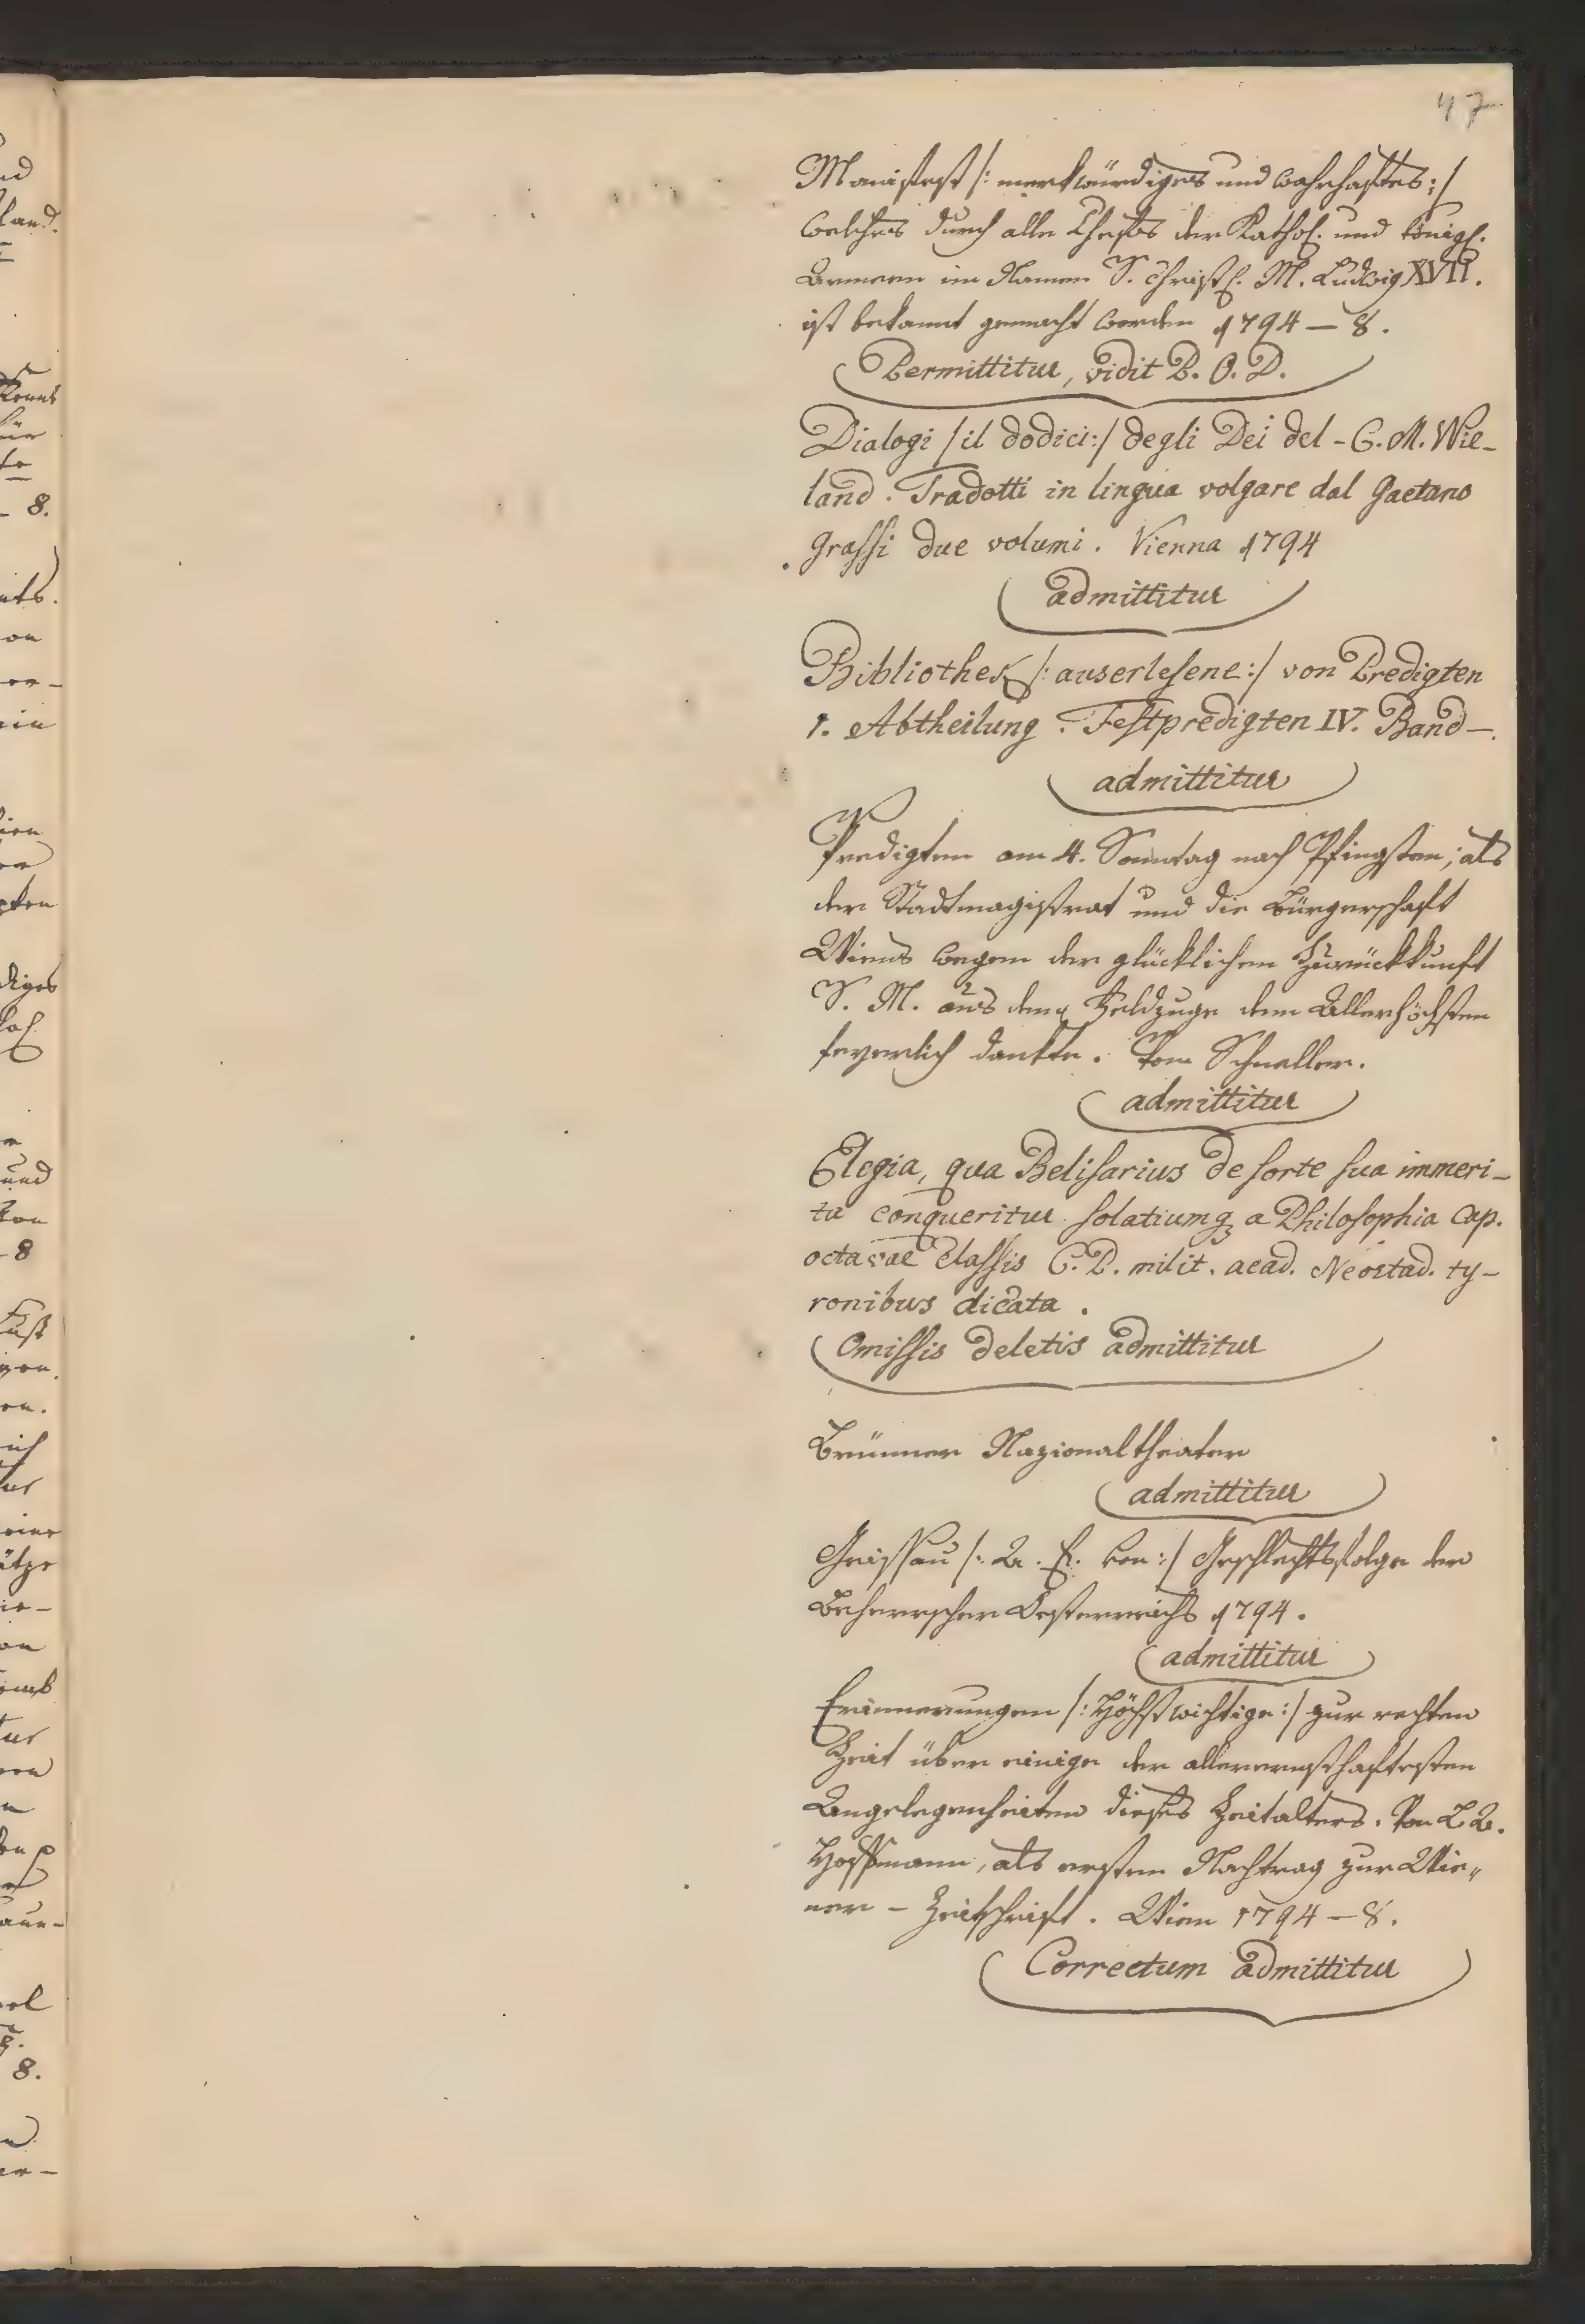 47
Manifest /: merkwürdiges und wahrhaftes :/
welches durch alle Chefs der Kathol. und königl.
Armeen im Namen S. Christl. M. Ludwig XVII.
ist bekannt gemacht worden 1794 – 8.
Permittitur, vidit P. O. D.
Dialogi / il dodici :/ degli Dei del – C. M. Wie-
land. Tradotti in lingua volgare dal Gaetano
Grassi due volumi. Vienna 1794
admittitur
Bibliothek /: auserlesene :/ von Predigten
1. Abtheilung. Festpredigten IV. Band –.
admittitur
Predigten am 4. Sonntag nach Pfingsten; als
der Stadtmagistrat und die Bürgerschaft
Wiens wegen der glücklichen Zurückkunft
S. M. aus dem Feldzuge dem Allerhöchsten
feyerlich dankte. Von Schneller.
admittitur
Elegia, qua Belisarius de sorte sua immeri-
ta conqueritur solatiumq; a Philosophia cap.
octavae Classis C. P. milit. acad. Neostad. ty-
ronibus dicata.
Omissis deletis admittitur
Brünner Nazionaltheater
admittitur
Geissau /: A. F. von :/ Geschlechtsfolge der
Beherrscher Oesterreichs 1794.
admittitur
Erinnerungen /: Höchstwichtige :/ zur rechten
Zeit über einige der allerernsthaftesten
Angelegenheiten dieses Zeitalters. Von L. A.
Hoffmann, als ersten Nachtrag zur Wie„
ner – Zeitschrift. Wien 1794 – 8.
Correctum admittitur